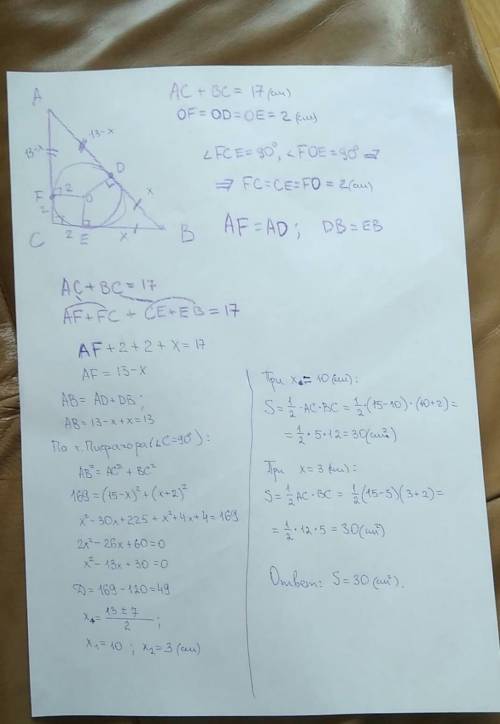 A
13-x
13-x
D
x
F
2
O
2
C
2
E
x
B
AC + BC = 17 (см)
OF = OD = OE = 2 (см)
∠FCE = 90°, ∠FOE = 90° ⇒
⇒ FC = CE = FO = 2 (см)
AF = AD ; DB = EB
AC + BC = 17
AF + FC + CE + EB = 17
AF + 2 + 2 + x = 17
AF = 13 - x
AB = AD + DB ;
AB = 13 - x + x = 13
По т. Пифагора (∠C = 90°) :
AB² = AC² + BC²
169 = (15-x)² + (x+2)²
x² - 30x + 225 + x² + 4x + 4 = 169
2x² - 26x + 60 = 0
x² - 13x + 30 = 0
D = 169 - 120 = 49
x = 13 ± 7 / 2 ;
x₁ = 10 ; x₂ = 3 (см)
При x = 10 (см) :
S = 1/2 · AC · BC = 1/2 · (15-10) · (10+2) =
= 1/2 · 5 · 12 = 30 (см²)
При x = 3 (см) :
S = 1/2 AC · BC = 1/2 (15-3)(3+2) =
= 1/2 · 12 · 5 = 30 (см²)
Ответ: S = 30 (см²).